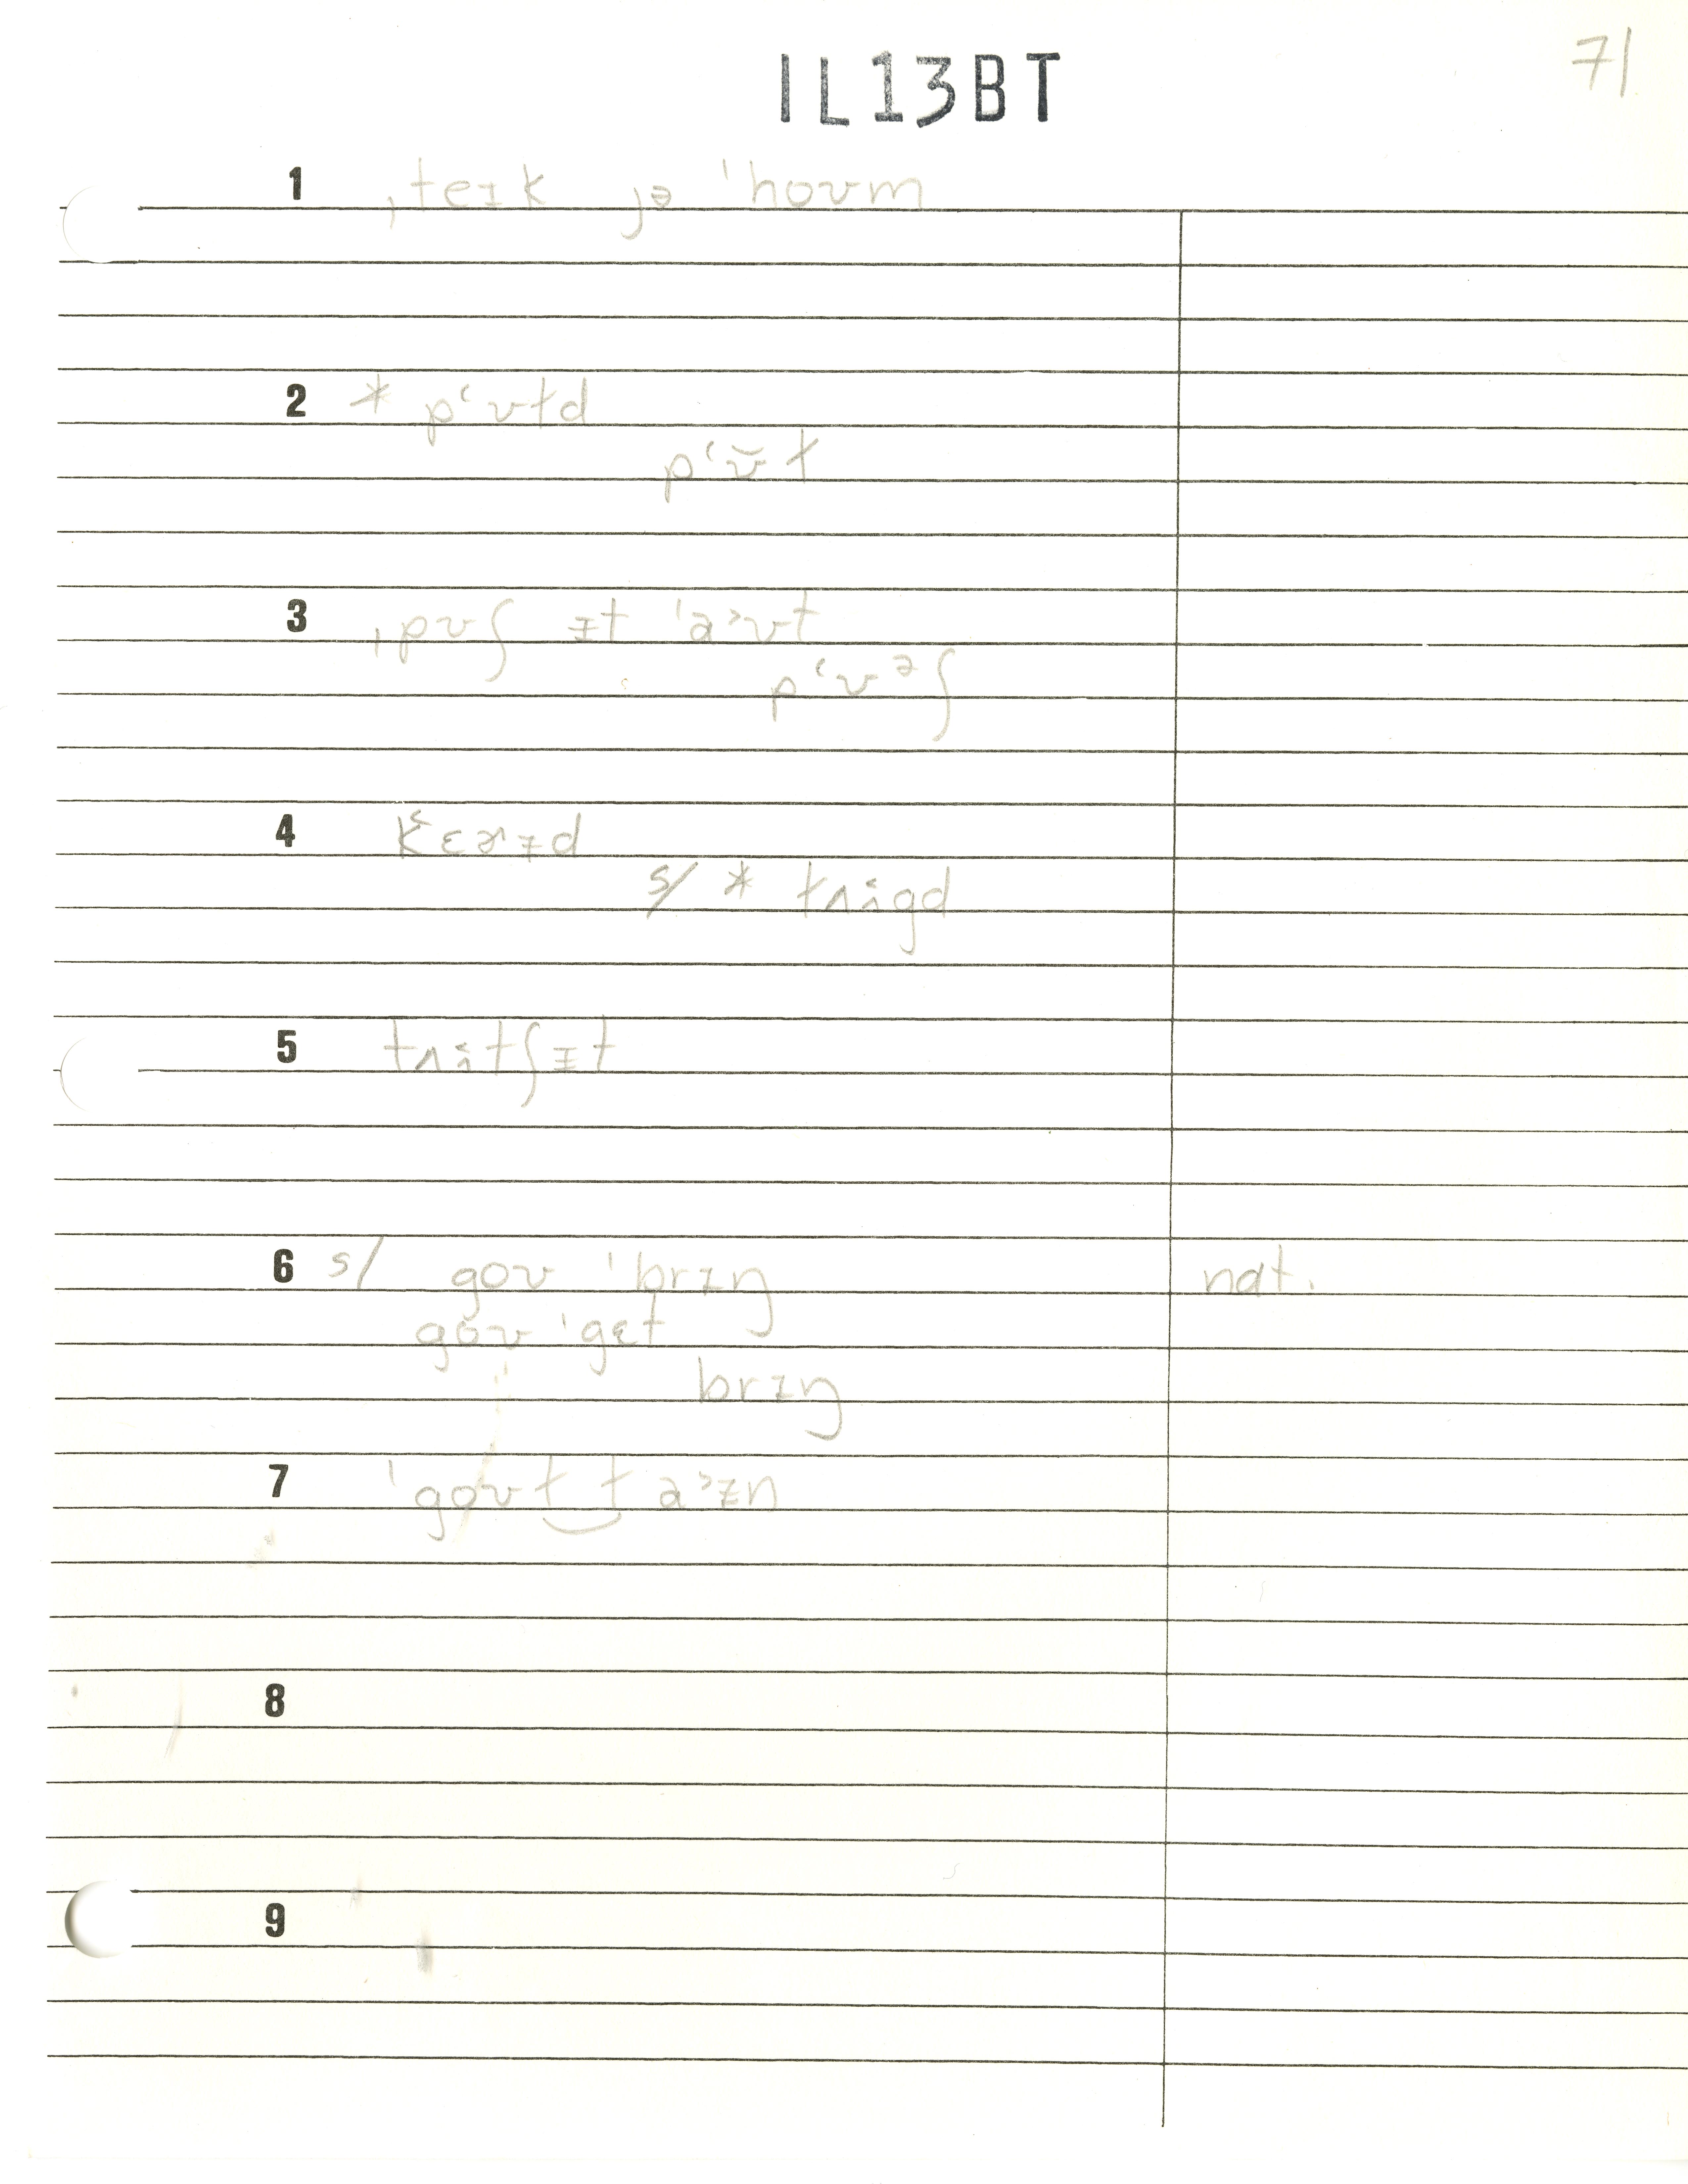 71
IL13BT
1 ˌteɪk jə ˈhoʊm
2 * pʻʊtd
pʻʊ̆t
3 ˌpʊʃ ɪt ˈa˃ʊt
pʻʊᵊʃ
4 kʻɛɚɪd
s/ * tʌi̯gd
5 tʌi̯tʃɪt
6 s/ goʊ ˈbrɪŋ nat.
goʊ ˈgɛt
brɪŋ
7 ˈgoʊt‿ta˃ɪn
8
9